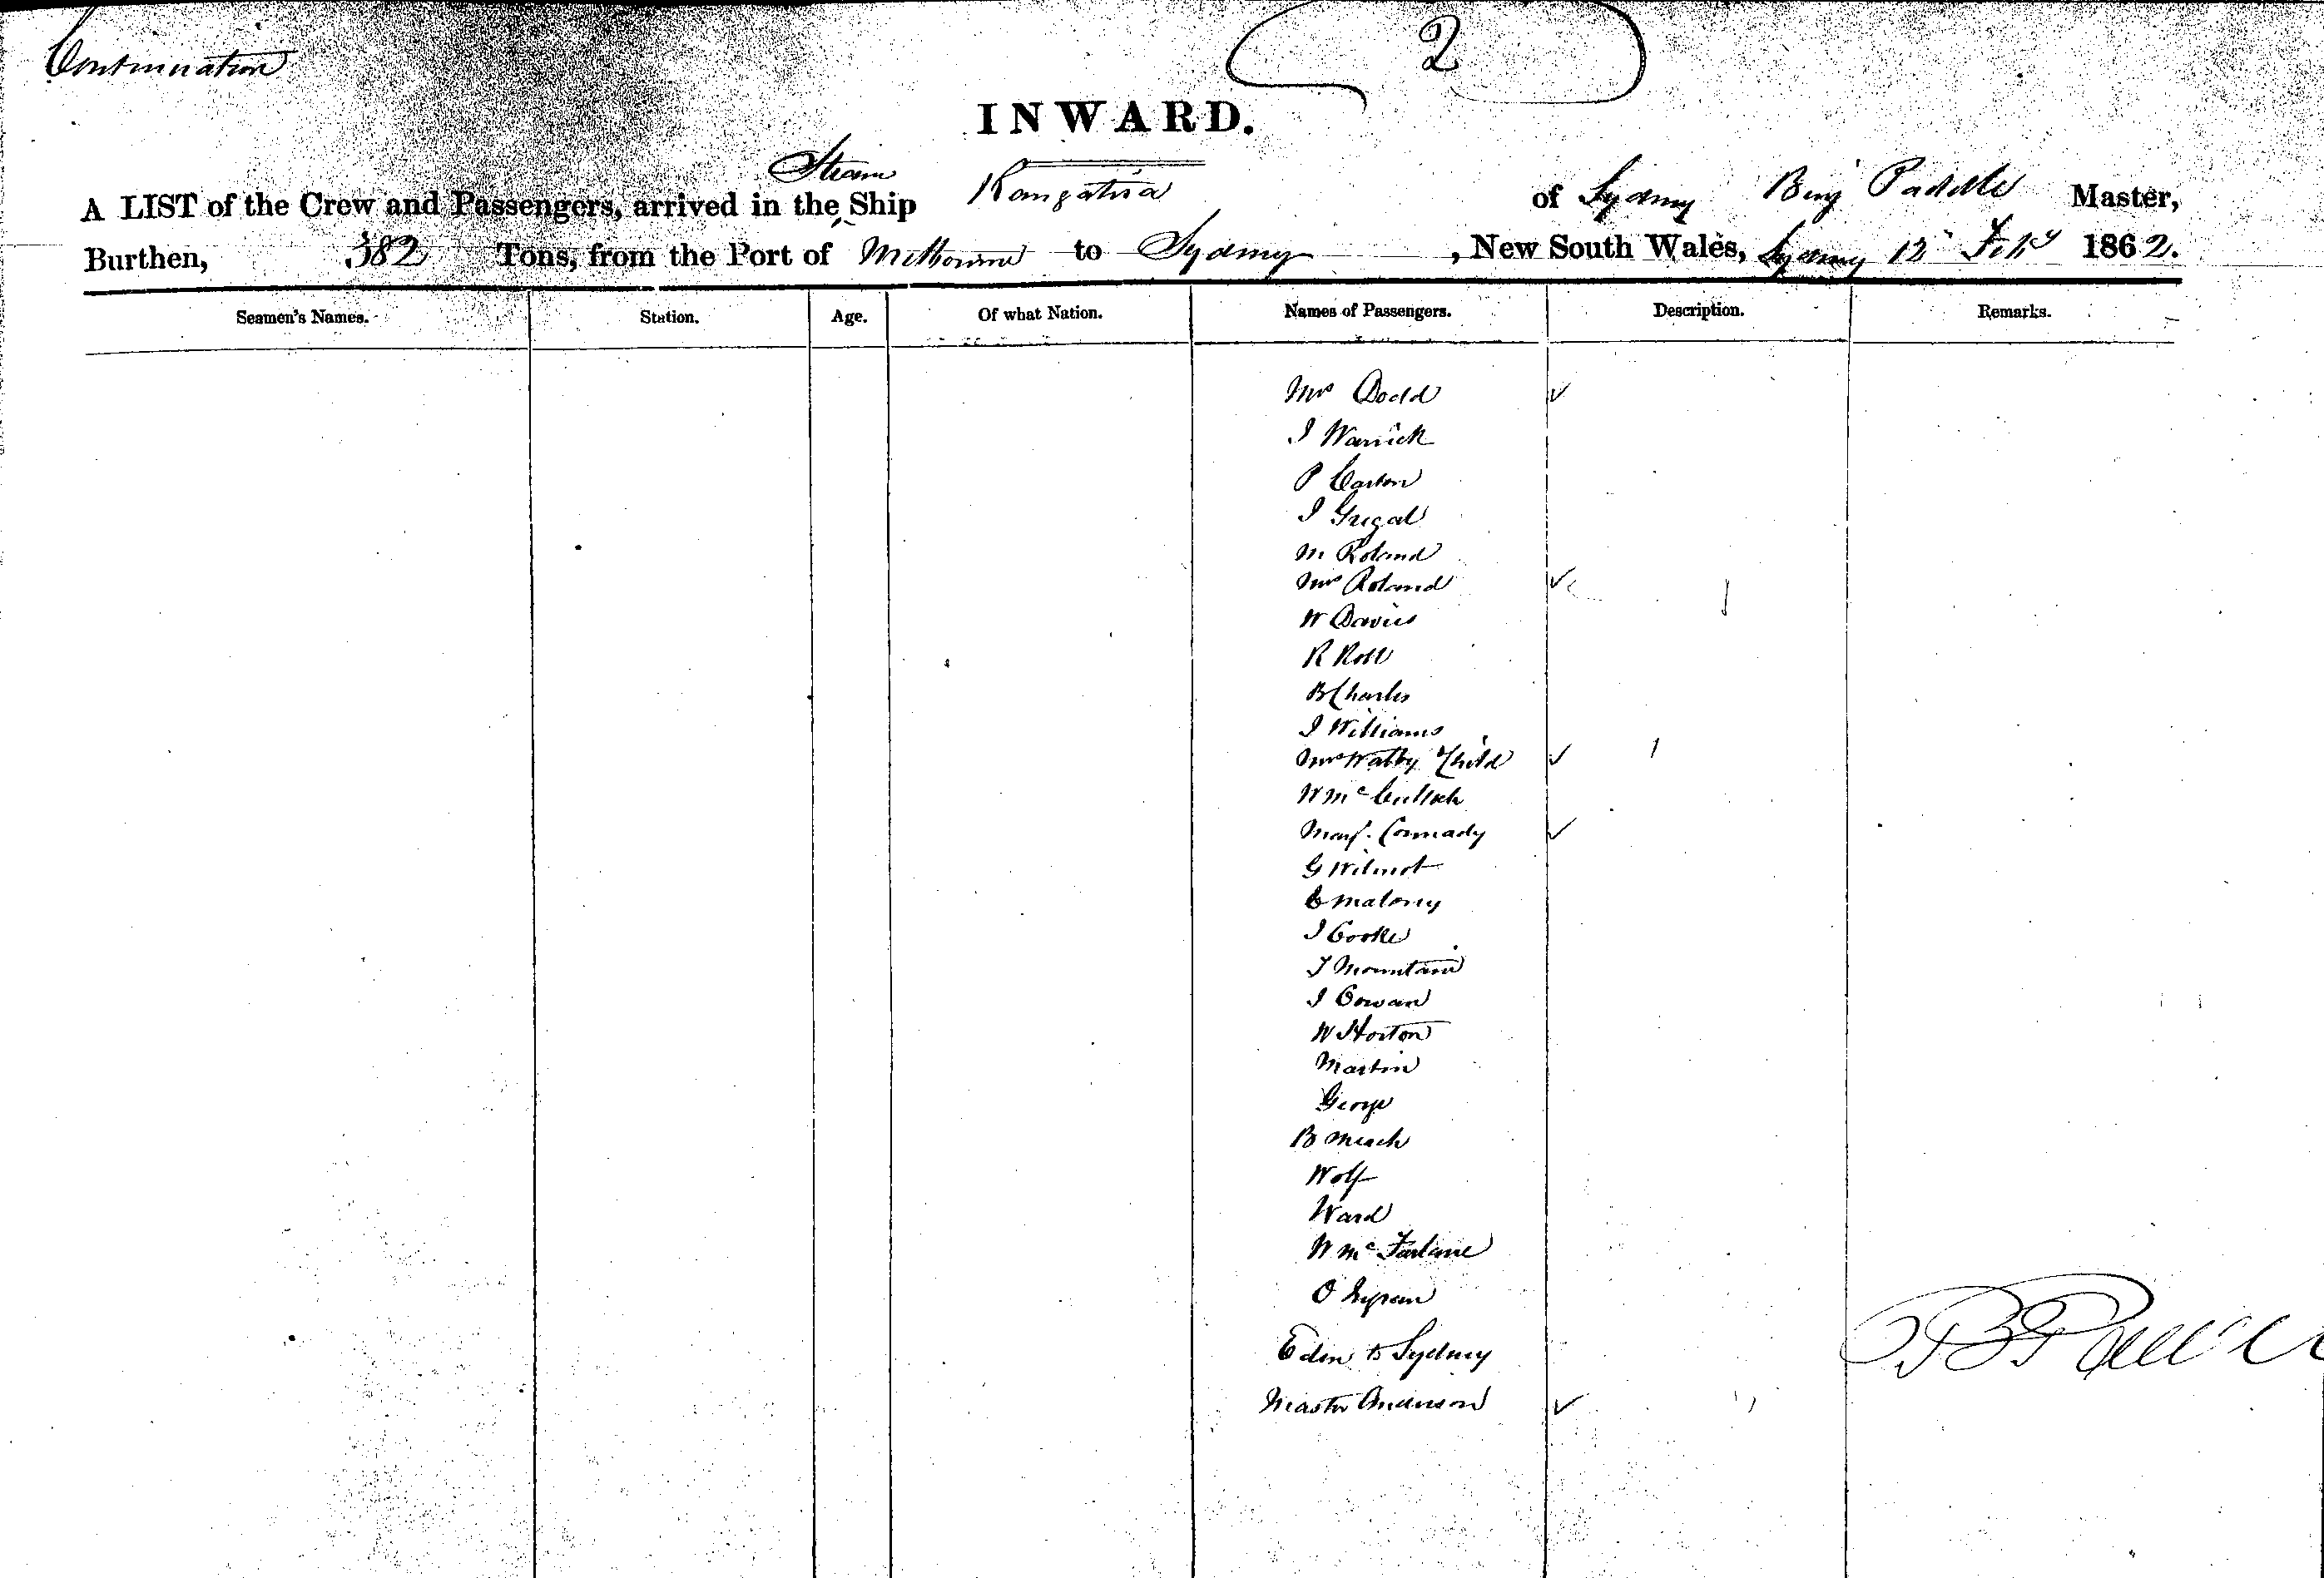 Continuation
2
INWARD.
Steam
A LIST of the Crew and Passengers, arrived in the Ship Rangatira of Sydney Benj Paddle Master,
Burthen, 382 Tons, from the Port of Melbourne to Sydney, New South Wales, Sydney 12 Feby 1862.
Seamen's Names. Station. Age. Of what Nation. Names of Passengers. Description. Remarks.
Mrs Dodd
J Warrick
P Carton
J Gregal
M Roland
Mrs Roland
W Davies
R Ross
B Charles
J Williams
Mrs Child
W McCulloch
G Wilmot
E Maloney
J Cooke
J Mountain
J Cowan
W Horton
Martin
George
B Meach
Wolf
Ward
W McFarlane
O
Eden to Sydney
Master Anderson